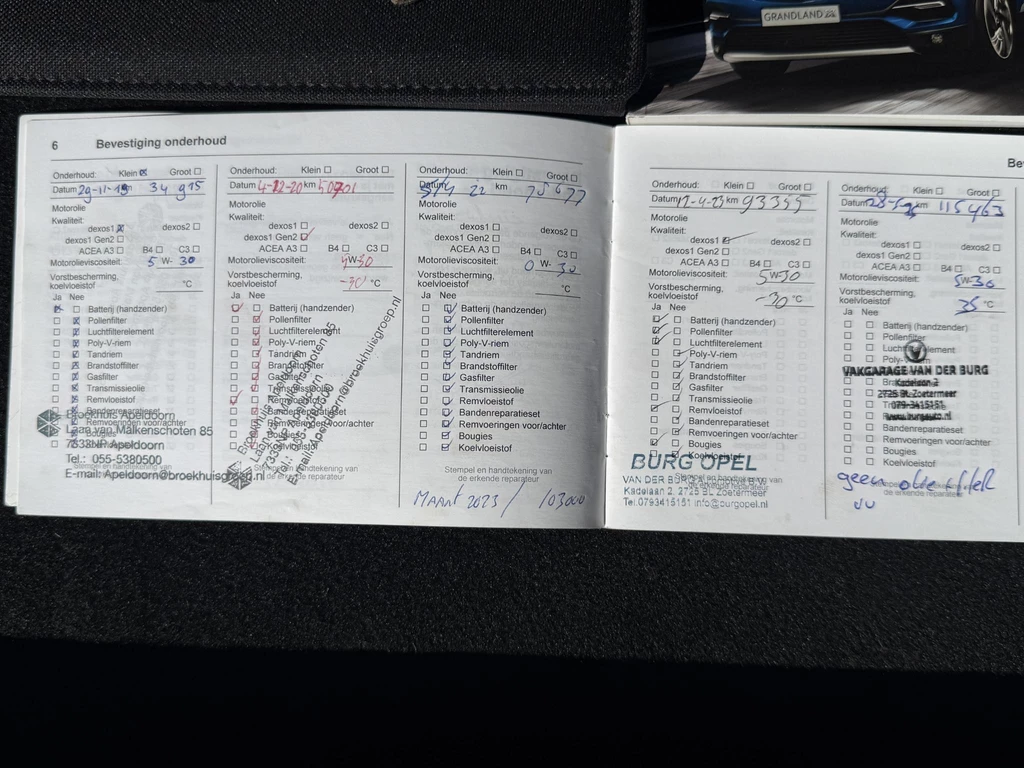 GRANDLAND X
6 Bevestiging onderhoud
Onderhoud: Klein Groot
Datum 29-11-19 km 34 915
Motorolie
Kwaliteit:
dexos1 dexos2
dexos1 Gen2
ACEA A3 B4 C3
Motorolieviscositeit: 5 W- 30
Vorstbescherming,
koelvloeistof °C
Ja Nee
Batterij (handzender)
Pollenfilter
Luchtfilterelement
Poly-V-riem
Tandriem
Brandstoffilter
Gasfilter
Transmissieolie
Remvloeistof
Bandenreparatieset
Remvoeringen voor/achter
Bougies
Broekhuis Apeldoorn
Laan van Malkenschoten 85
7333NP Apeldoorn
Tel.: 055-5380500
E-mail: Apeldoorn@broekhuisgroep.nl
Onderhoud: Klein Groot
Datum 4-12-20 km 50701
Motorolie
Kwaliteit:
dexos1 dexos2
dexos1 Gen2
ACEA A3 B4 C3
Motorolieviscositeit:
Vorstbescherming,
koelvloeistof -30 °C
Ja Nee
Batterij (handzender)
Pollenfilter
Luchtfilterelement
Poly-V-riem
Tandriem
Brandstoffilter
Gasfilter
Transmissieolie
Remvloeistof
Bandenreparatieset
Remvoeringen voor/achter
Broekhuis Apeldoorn
Laan van Malkenschoten 85
7333NP Apeldoorn
Tel.: 055-5380500
E-mail: Apeldoorn@broekhuisgroep.nl
Stempel en handtekening van
de erkende reparateur
Onderhoud: Klein Groot
Datum 22 km 75677
Motorolie
Kwaliteit:
dexos1 dexos2
dexos1 Gen2
ACEA A3 B4 C3
Motorolieviscositeit: 0 W- 30
Vorstbescherming,
koelvloeistof °C
Ja Nee
Batterij (handzender)
Pollenfilter
Luchtfilterelement
Poly-V-riem
Tandriem
Brandstoffilter
Gasfilter
Transmissieolie
Remvloeistof
Bandenreparatieset
Remvoeringen voor/achter
Bougies
Koelvloeistof
Stempel en handtekening van
de erkende reparateur
MAART 2023 / 103000
Be
Onderhoud: Klein Groot
Datum 12-4-23 km 93355
Motorolie
Kwaliteit:
dexos1 dexos2
dexos1 Gen2
ACEA A3 B4 C3
Motorolieviscositeit: 5W-30
Vorstbescherming,
koelvloeistof -30 °C
Ja Nee
Batterij (handzender)
Pollenfilter
Luchtfilterelement
Poly-V-riem
Tandriem
Brandstoffilter
Gasfilter
Transmissieolie
Remvloeistof
Bandenreparatieset
Remvoeringen voor/achter
Bougies
Koelvloeistof
BURG OPEL
VAN DER BURG
Kadelaan 2, 2725 BL Zoetermeer
Tel:0793415151 info@burgopel.nl
Onderhoud: Klein Groot
Datum km 115463
Motorolie
Kwaliteit:
dexos1 dexos2
dexos1 Gen2
ACEA A3 B4 C3
Motorolieviscositeit: 5W-30
Vorstbescherming,
koelvloeistof 35 °C
Ja Nee
Batterij (handzender)
Pollenfilter
Luchtfilterelement
Poly-V-riem
VAKGARAGE VAN DER BURG
Kadelaan 2
2725 BL Zoetermeer
079-3415151
Remvloeistof
Bandenreparatieset
Remvoeringen voor/achter
Bougies
Koelvloeistof
Stempel en handtekening van
de erkende reparateur
geen olie filter